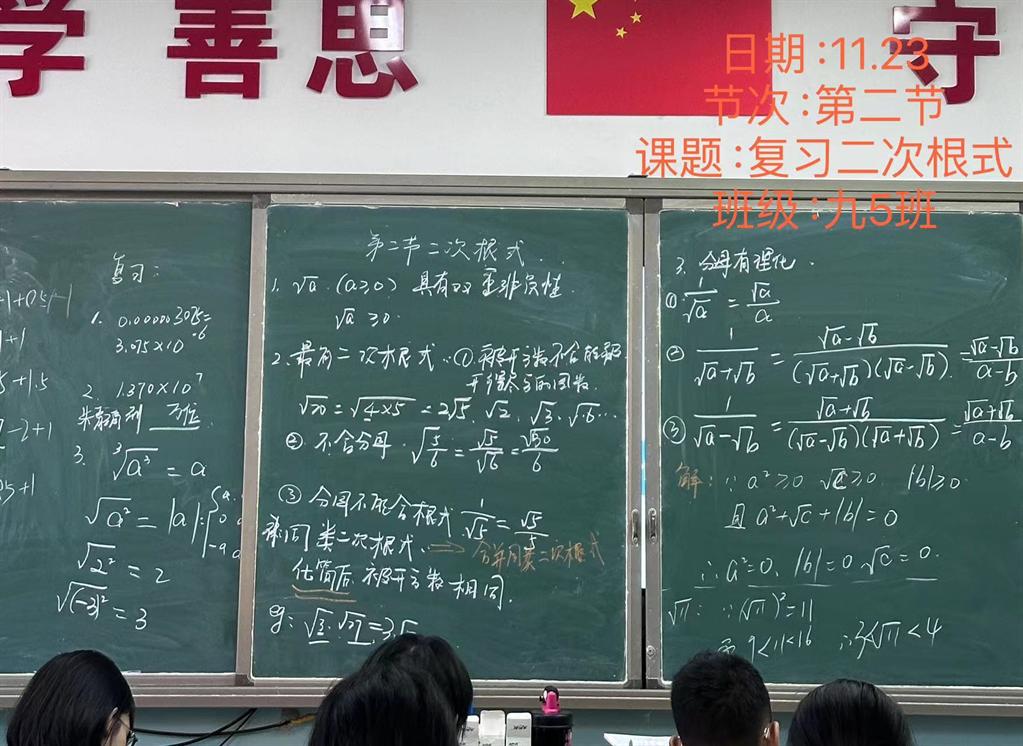 学善思
守
日期:11.23
节次:第二节
课题:复习二次根式
班级:九5班
+1+0.5-1
+1
5+1.5
-2+1
25+1
复习:
1. 0.000003075=
3.075×10^-6
2. 1.370×10^7
万位
3. ∛a³ = a
√a² = |a|
√2² = 2
√(-3)² = 3
第二节二次根式
1. √a (a≥0) 具有双重非负性.
√a ≥0.
2. 最简二次根式:①被开方数不含能被
开得尽方的因数.
√20=√4×5=2√5. √2. √3. √6...
② 不含分母. √5/6=√5/√6=√30/6
③ 分母不能含根式 1/√5=√5/5
同类二次根式. ⇒ 合并同类二次根式
化简后被开方数相同.
eg: √3. √27=3√
3. 分母有理化.
① 1/√a = √a/a
② 1/(√a+√b) = (√a-√b)/((√a+√b)(√a-√b)) = (√a-√b)/(a-b)
③ 1/(√a-√b) = (√a+√b)/((√a-√b)(√a+√b)) = (√a+√b)/(a-b)
解: ∵ a²≥0 √c≥0. |b|≥0
且 a²+√c+|b|=0
∴ a²=0. |b|=0 √c=0.
√11: ∵ (√11)²=11
9<11<16 ∴3<√11<4